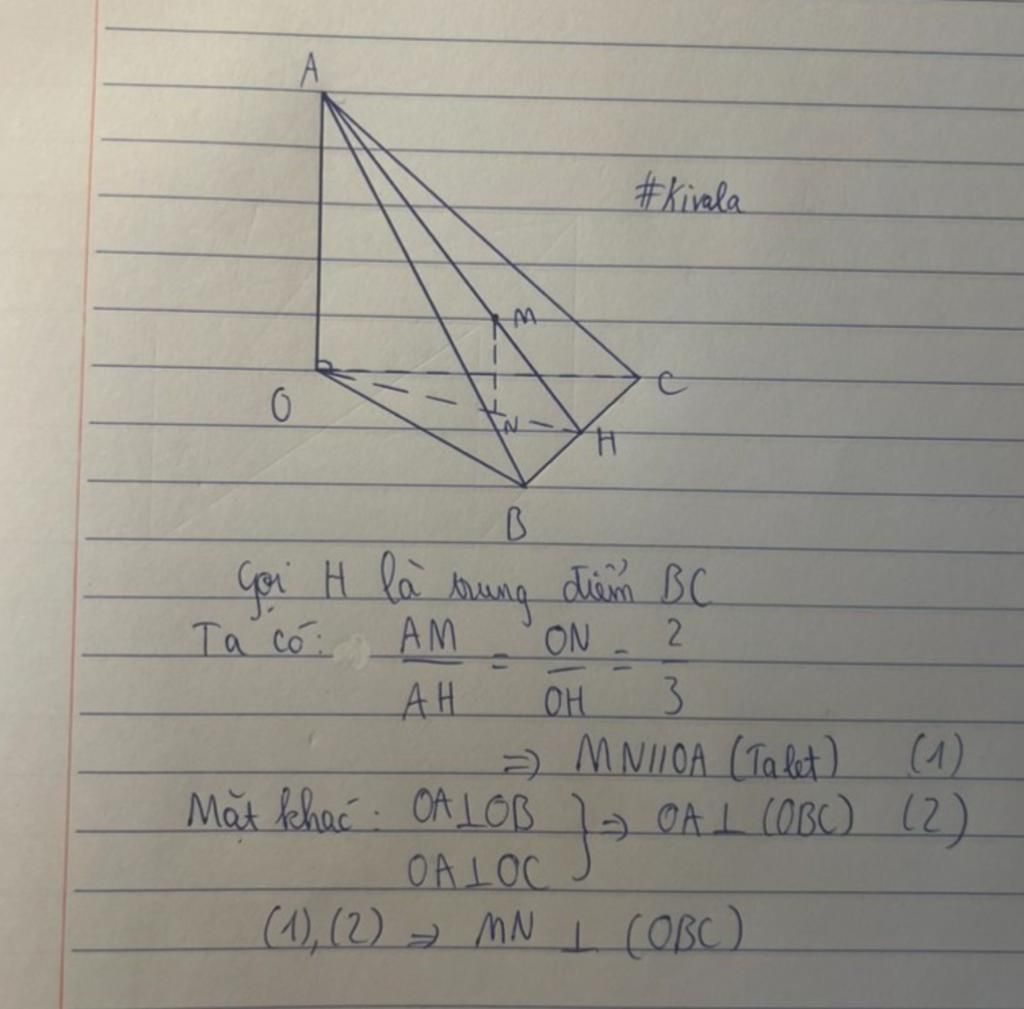 A
#Kirala
M
O
C
N
H
B
Gọi H là trung điểm BC
Ta có: AM/AH = ON/OH = 2/3
=> MN//OA (Talet) (1)
Mặt khác: OA⊥OB
OA⊥OC } => OA⊥(OBC) (2)
(1),(2) => MN ⊥ (OBC)